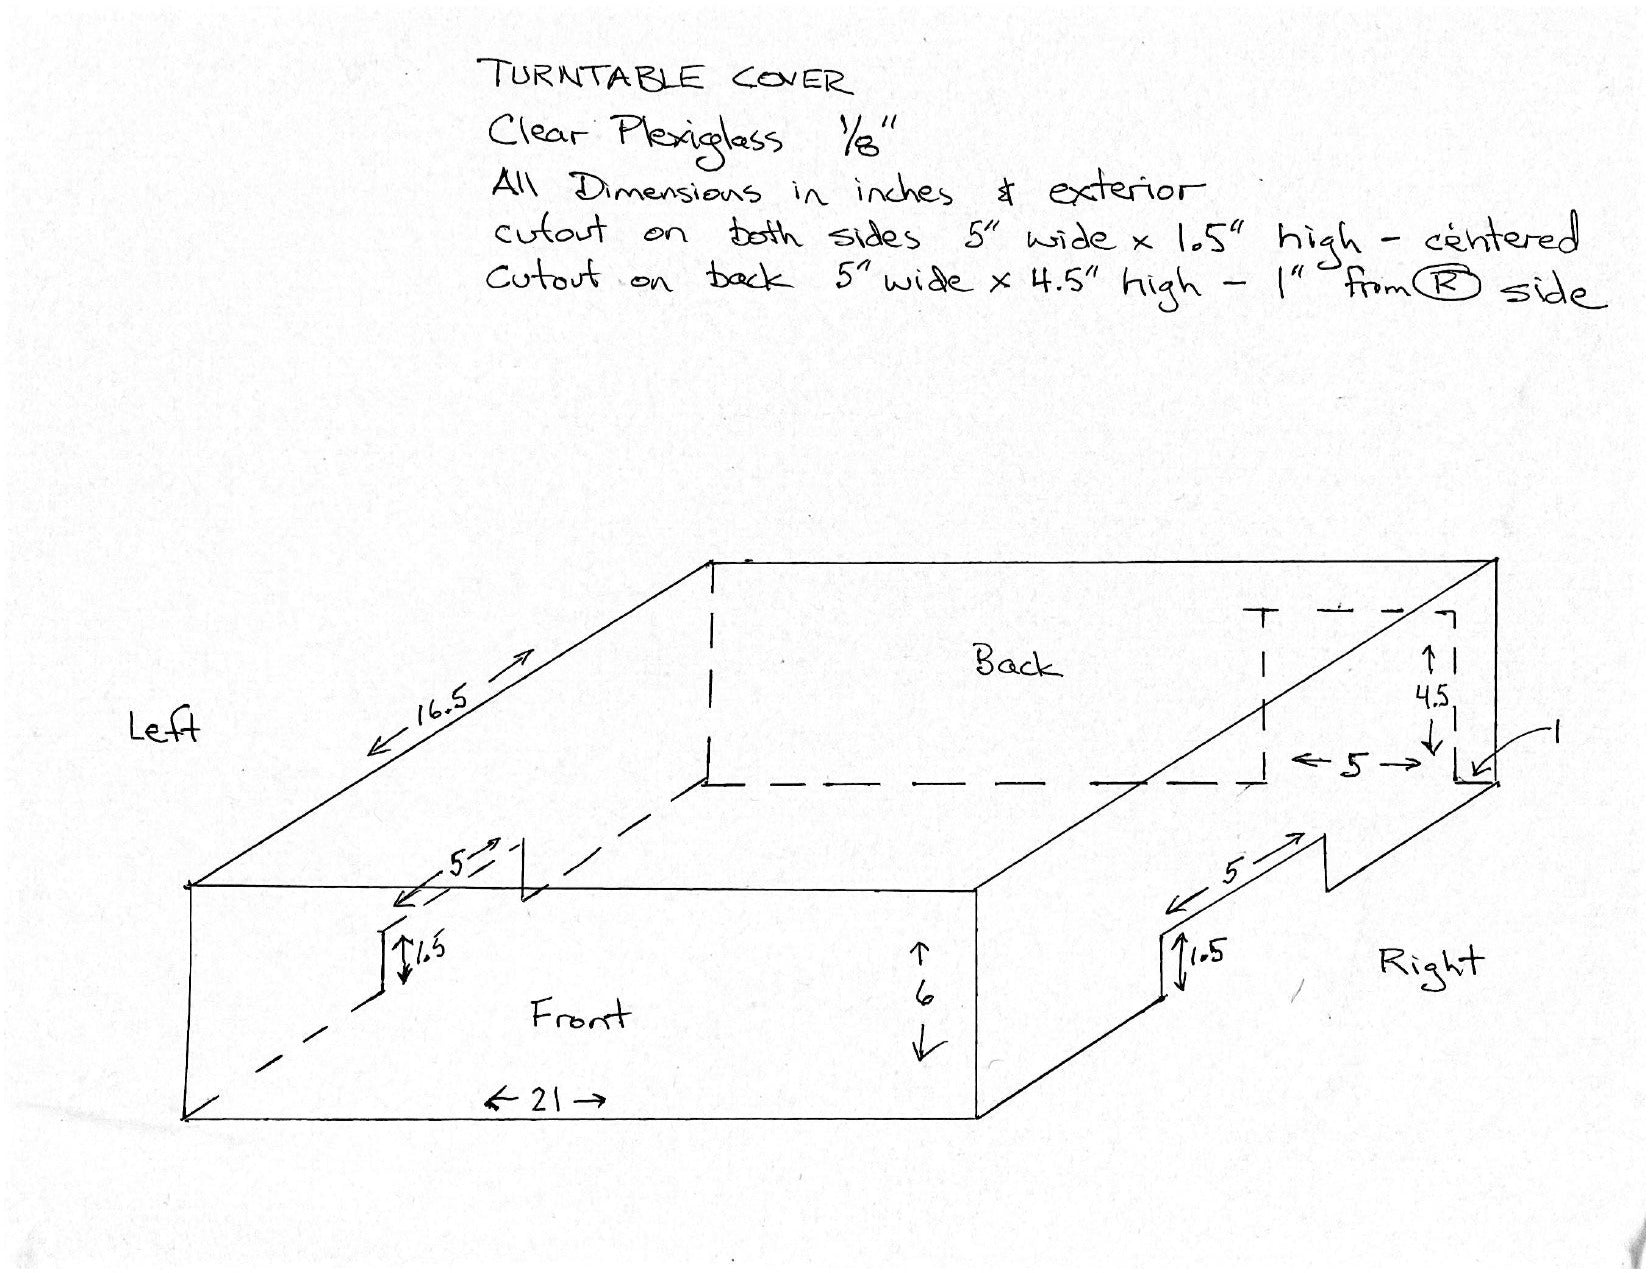 TURNTABLE COVER
Clear Plexiglass 1/8"
All Dimensions in inches & exterior
cutout on both sides 5" wide x 1.5" high - centered
cutout on back 5" wide x 4.5" high - 1" from R side
Back
4.5
16.5
Left
1
5
5
5
1.5
1.5
Right
6
Front
21